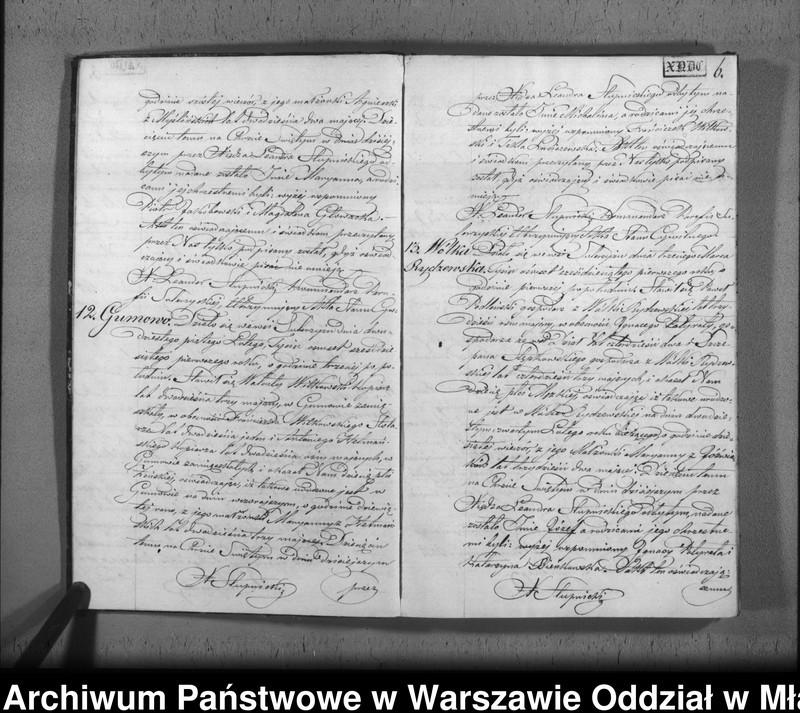 godzinie szóstej wieczór, z jego małżonki Agnieszki
z lat dwadzieścia dwa mającej. Dzie-
cięciu temu na Chrzcie Świętym w dniu dzisiej-
szym przez Xiędza Leandra Słupnickiego od-
bytym nadane zostało Imie Maryanna, a rodzi-
cami jej chrzestnemi byli: wyżej wspomniony
Piotr i Magdalena
Akt ten oświadczającemu i świadkom przeczytany
przez Nas tylko podpisany został, gdyż oświad-
czający i świadkowie pisać nie umieją.
X. Leander Słupnicki Kommendarz Para-
fii utrzymujący Akta Stanu Cyw:
12. Gumowo. Działo się we wsi dnia dwu-
dziestego piątego Lutego, Tysiąc ośmset sześćdzie-
siątego pierwszego roku, o godzinie trzeciej po po-
łudniu. Stawił się Walenty Witkowski
lat dwadzieścia trzy mający, w Gumowie zamie-
szkały, w obecności Franciszka Witkowskiego Stola-
rza lat dwadzieścia jeden i Antoniego
lat dwadzieścia ośm mających, w
Gumowie zamieszkałych i okazał Nam dziecię płci
Żeńskiej, oświadczając iż takowe urodzone jest w
Gumowie na dniu wczorajszym, o godzinie dziewią-
tej rano, z jego małżonki Maryanny z
lat dwadzieścia trzy mającej. Dziecięciu
temu na Chrzcie Świętym w dniu dzisiejszym
X. Słupnicki przez
XNDC 6.
przez Xiędza Leandra Słupnickiego odbytym na-
dane zostało Imie Michalina, a rodzicami jej chrze-
stnemi byli: wyżej wspomniony Franciszek Witkow-
ski i Tekla Akt ten oświadczającemu
i świadkom przeczytany przez Nas tylko podpisany
został, gdyż oświadczający i świadkowie pisać nie u-
mieją.
X. Leander Słupnicki Kommendarz Parafii
utrzymujący Akta Stanu Cywilnego
13. Wólka Działo się we wsi dnia trzeciego Marca
Ryckowska. Tysiąc ośmset sześćdziesiątego pierwszego roku, o
godzinie pierwszej po południu. Stawił się Paweł
gospodarz z Wólki
lat mający, w obecności Ignacego go-
spodarza lat czterdzieści dwa i Szcze-
pana gospodarza z Wólki
lat czterdzieści trzy mających, i okazał Nam
dziecię płci Męzkiej oświadczając iż takowe urodzo-
ne jest w na dniu dwudzie-
stym czwartym Lutego roku bieżącego, o godzinie
wieczór, z jego Małżonki Maryanny z
lat trzydzieści dwa mającej. Dziecięciu temu
na Chrzcie Świętym w dniu dzisiejszym przez
Xiędza Leandra Słupnickiego odbytym, nadane
zostało Imie Józef a rodzicami jego chrzestne-
mi byli: wyżej wspomniony Ignacy i
Katarzyna Akt ten oświadczają-
X. Słupnicki cemu
Archiwum Państwowe w Warszawie Oddział w Mła